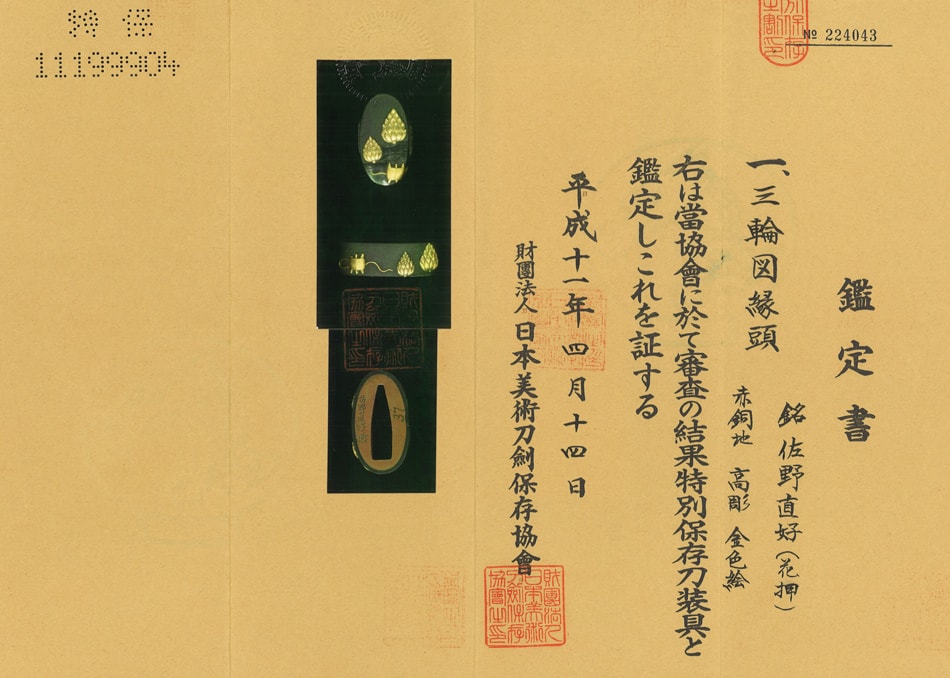 特 保
11199904
№ 224043
鑑定書
一、三輪図縁頭
銘 佐野直好(花押)
赤銅地 高彫 金色絵
右は當協會に於て審査の結果特別保存刀装具と
鑑定しこれを証する
平成十一年四月十四日
財團法人 日本美術刀劍保存協會
財團法人
日本美術
刀劍保存
協會之印
37